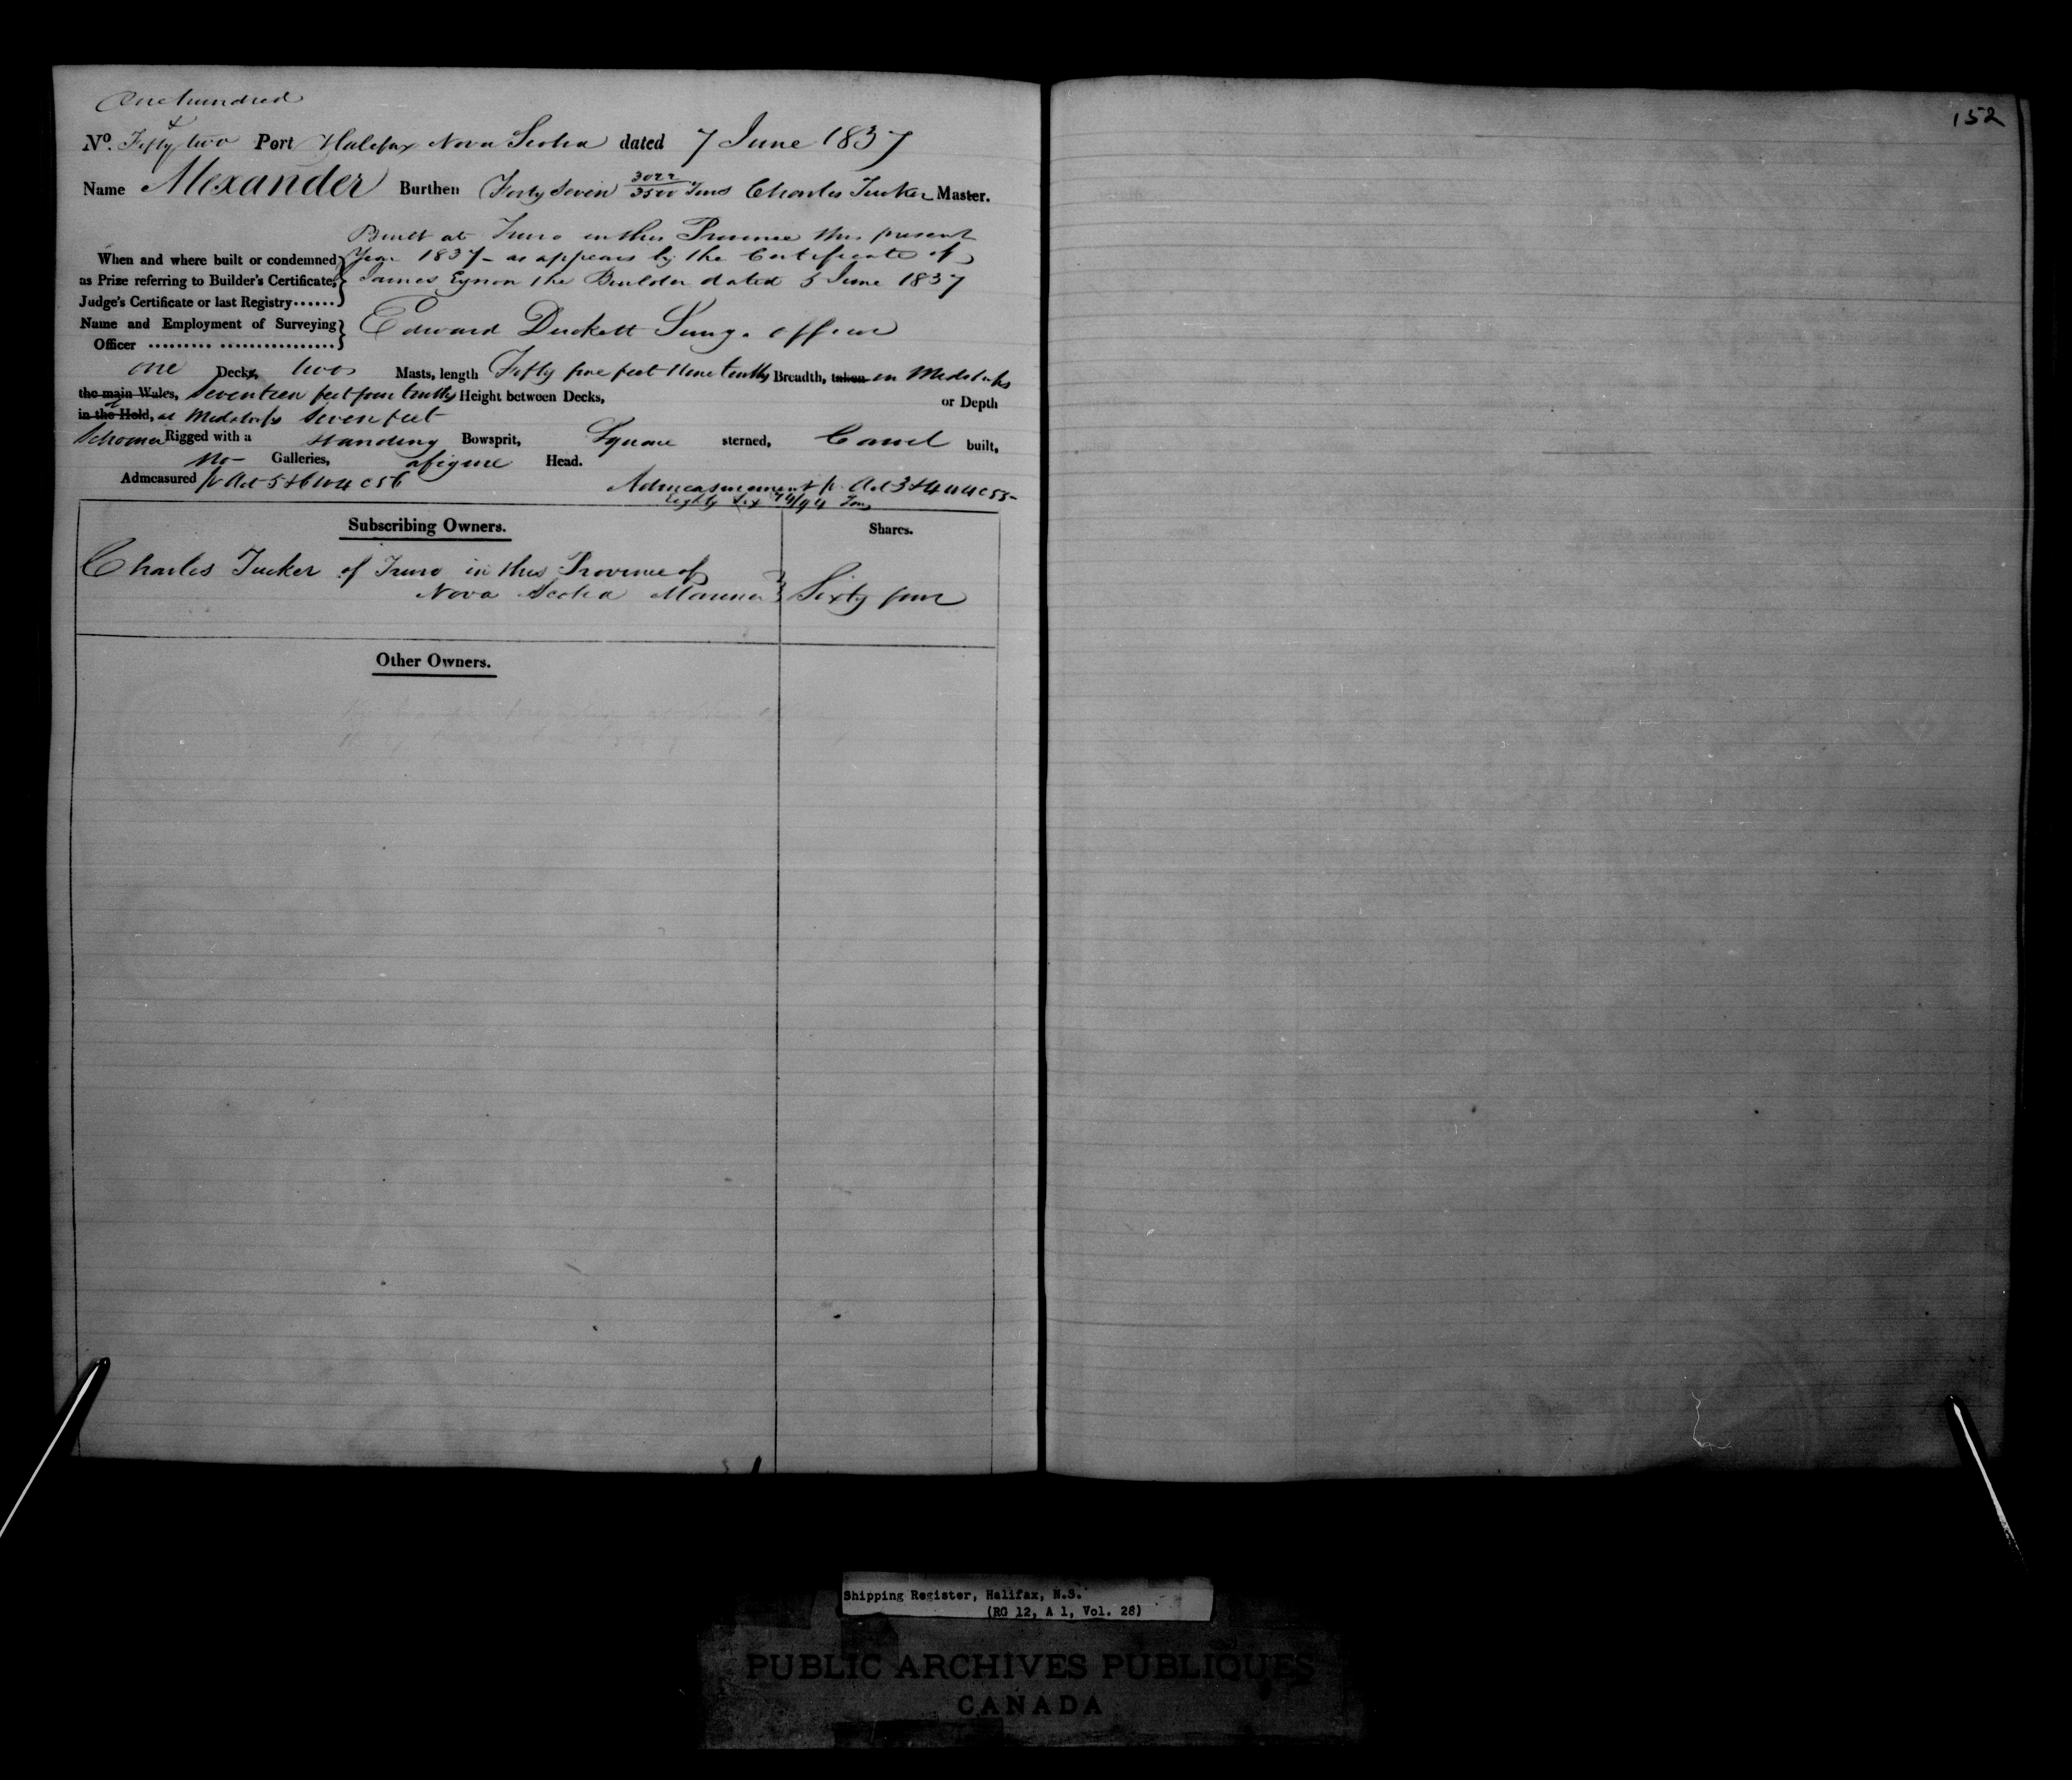 One hundred
152
&
No. Fifty two Port Halifax Nova Scotia dated 7 June 1837
Name Alexander Burthen Forty Seven 3022/3500 Tons Charles Tucker Master.
Built at Truro in this Province this present
When and where built or condemned Year 1837 - as appears by the Certificate of
as Prize referring to Builder's Certificate, James Eynon the Builder dated 5 June 1837
Judge's Certificate or last Registry......
Name and Employment of Surveying Edward Duckett Survg. officer
Officer ......... ................
one Decks, two Masts, length Fifty five feet Nine tenths Breadth, taken in Midships
the main Wales, Seventeen feet four tenths Height between Decks, or Depth
in the Hold, at Midships Seven feet
Schooner Rigged with a standing Bowsprit, Square sterned, Carvel built,
No - Galleries, a figure Head.
Admeasured pr Act 5 & 6 W 4 C 56 Admeasurement pr Act 3 & 4 W 4 C 55 -
Eighty Six 74/94 Tons
Subscribing Owners. Shares.
Charles Tucker of Truro in this Province of
Nova Scotia Mariner Sixty four
Other Owners.
Shipping Register, Halifax, N.S.
(RG 12, A 1, Vol. 28)
PUBLIC ARCHIVES PUBLIQUES
CANADA